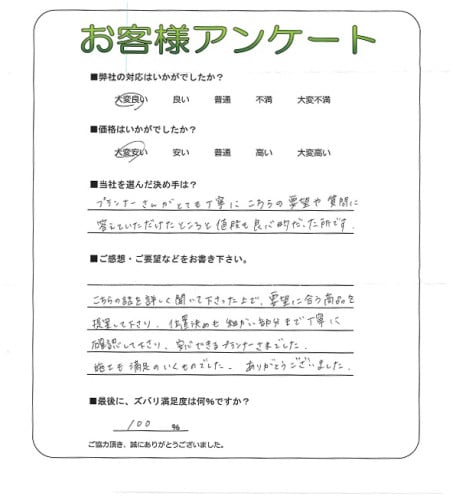 お客様アンケート
■弊社の対応はいかがでしたか？
大変良い 良い 普通 不満 大変不満
■価格はいかがでしたか？
大変安い 安い 普通 高い 大変高い
■当社を選んだ決め手は？
プランナーさんがとても丁寧に こちらの要望や質問に
答えていただけたところと値段も良心的だった所です.
■ご感想・ご要望などをお書き下さい。
こちらの話を詳しく聞いて下さった上で、要望に合う商品を
提案して下さり、位置決めも細かい部分まで丁寧に
確認して下さり、安心できるプランナーさまでした.
施工も満足のいくものでした. ありがとうございました.
■最後に、ズバリ満足度は何%ですか？
100 %
ご協力頂き、誠にありがとうございました。